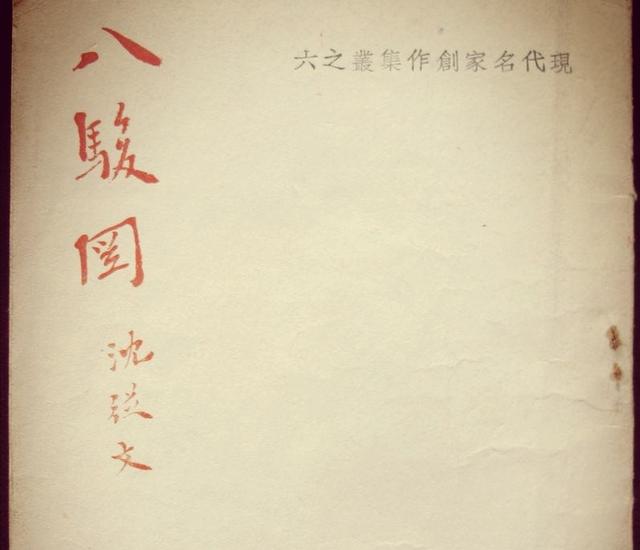 現代名家創作集叢之六
八駿圖
沈從文